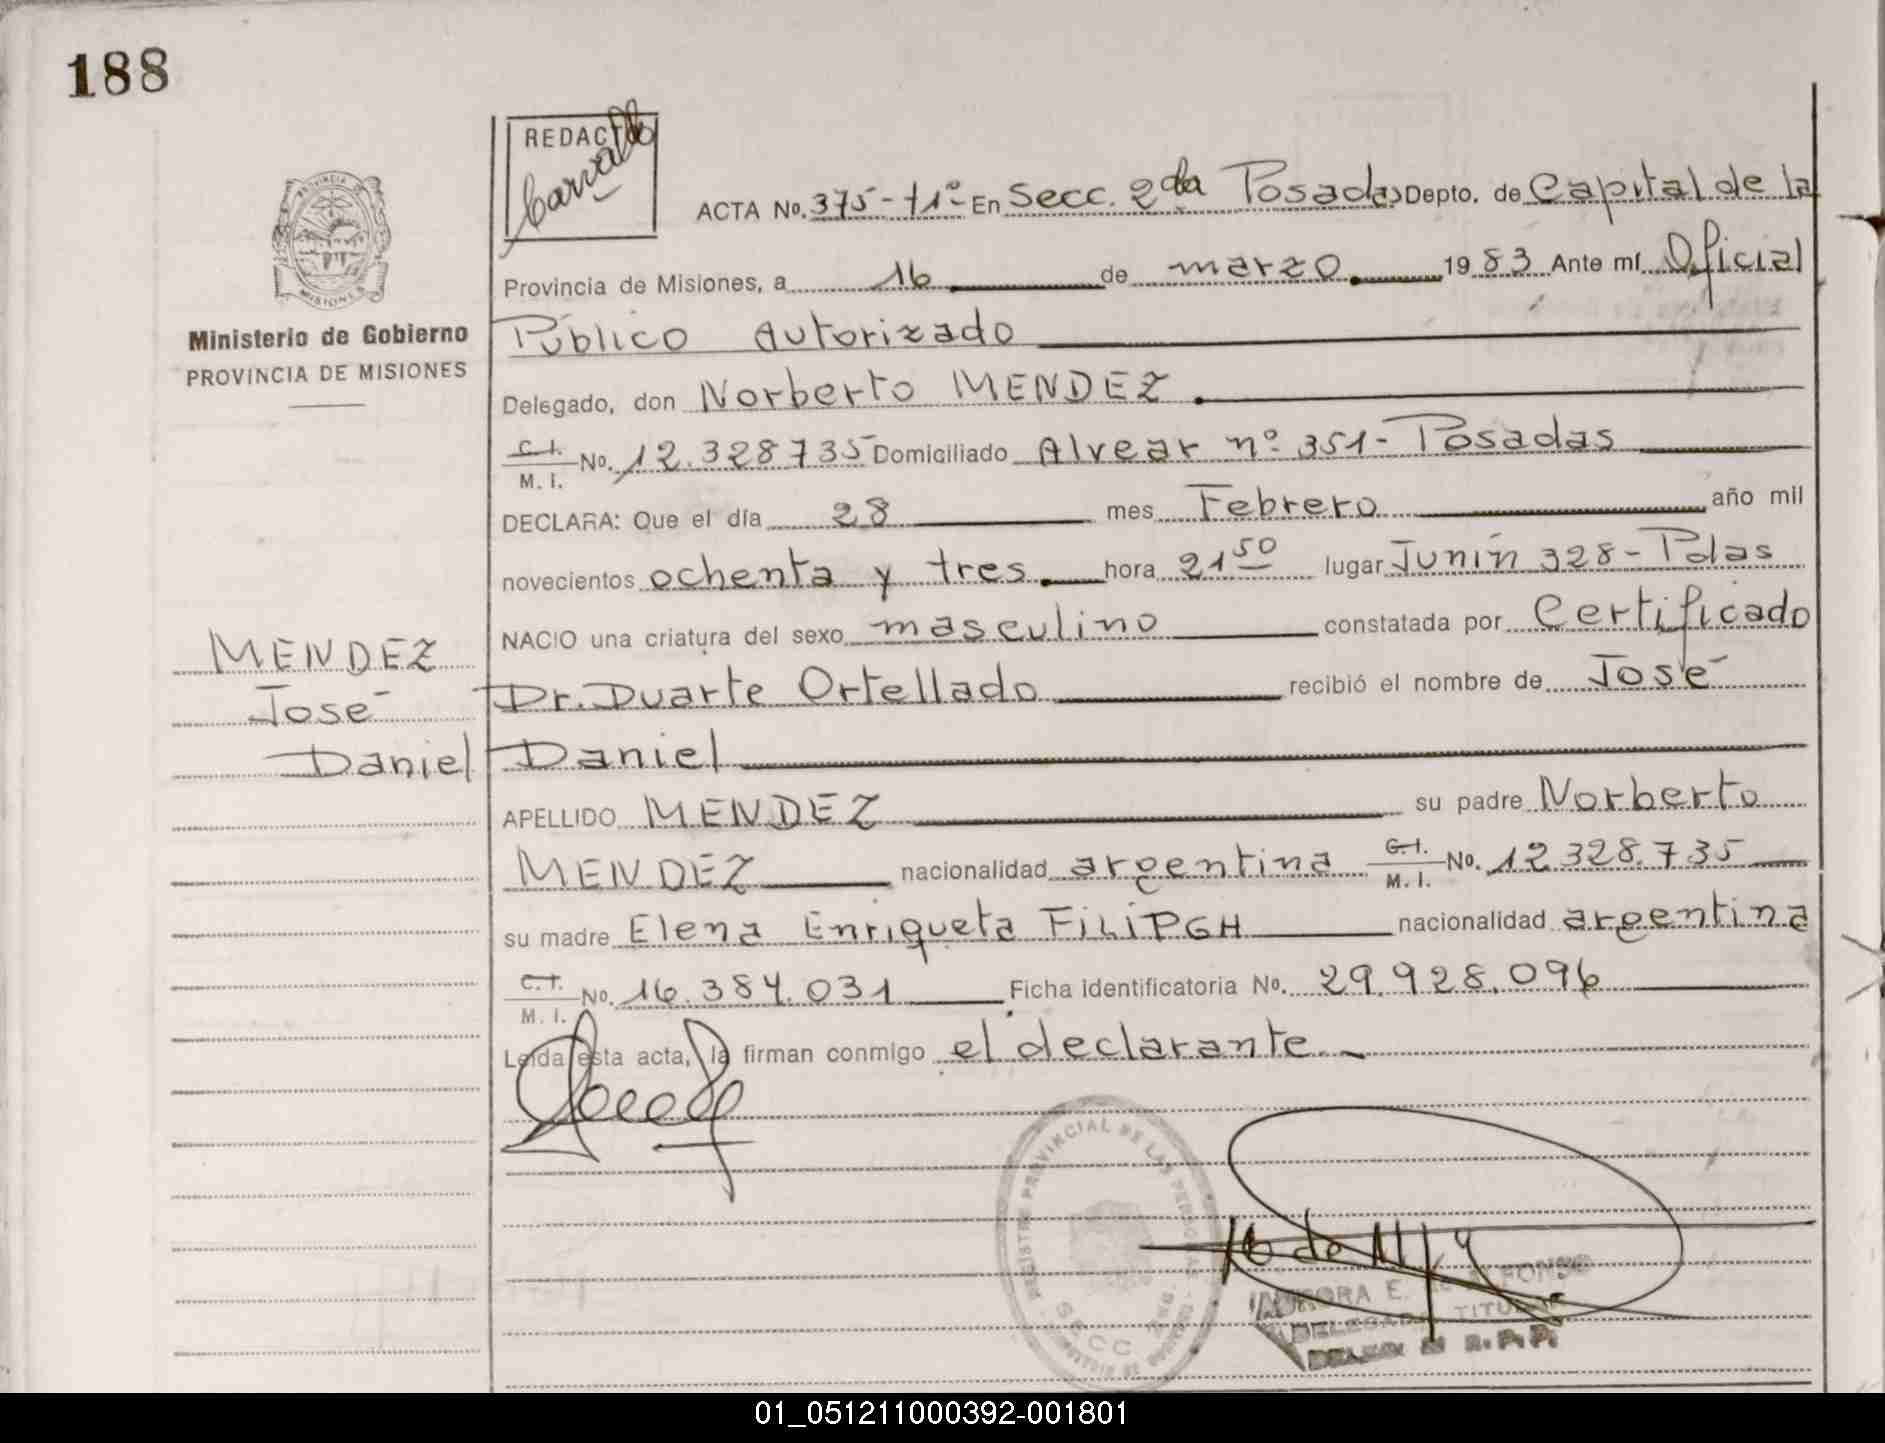 188
REDACTO
Carvallo
PROVINCIA DE
MISIONES
Ministerio de Gobierno
PROVINCIA DE MISIONES
ACTA No. 375-t1º- En Secc. 2da Posadas Depto. de Capital de la
Provincia de Misiones, a 16 de marzo 1983 Ante mí Oficial
Público Autorizado
Delegado, don Norberto MENDEZ
C.I. M. I. No. 12.328735 Domiciliado Alvear nº 351- Posadas
DECLARA: Que el día 28 mes Febrero año mil
novecientos ochenta y tres hora 21 50 lugar Junín 328- Pdas
NACIO una criatura del sexo masculino constatada por Certificado
Dr. Duarte Ortellado recibió el nombre de José
Daniel
MENDEZ
José
Daniel
APELLIDO MENDEZ su padre Norberto
MENDEZ nacionalidad argentina C.I. M. I. No. 12.328.735
su madre Elena Enriqueta FiLiPGH nacionalidad argentina
C.I. M. I. No. 16.384.031 Ficha identificatoria No. 29.928.096
Leída esta acta, la firman conmigo el declarante
REGISTRO PROVINCIAL DE LAS PERSONAS
SECC 2DA
AURORA E. DE ALFONSO
DELEGADA TITULAR
01_051211000392-001801